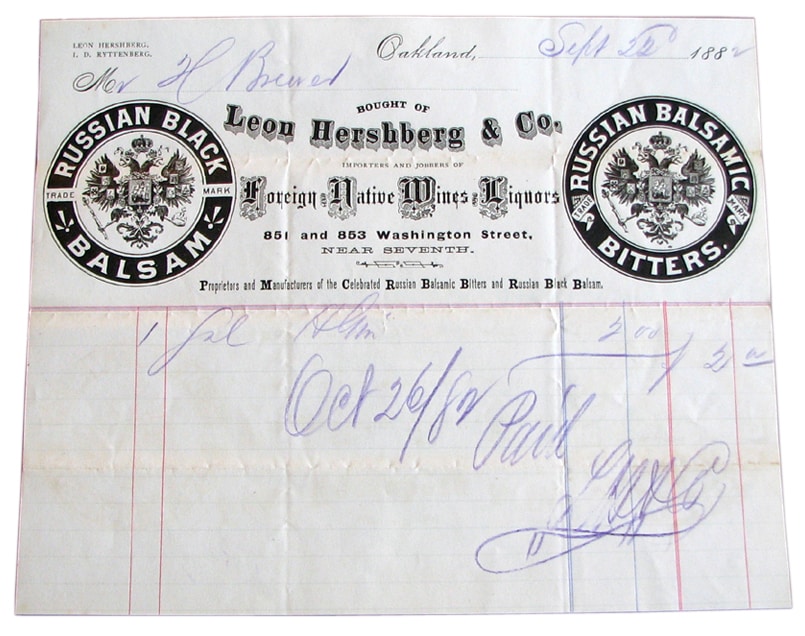 LEON HERSHBERG,
I. D. RYTTENBERG.
Oakland, Sept 1882
Mr H Brewer
BOUGHT OF
Leon Hershberg & Co.
IMPORTERS AND JOBBERS OF
Foreign and Native Wines and Liquors
851 and 853 Washington Street,
NEAR SEVENTH.
Proprietors and Manufacturers of the Celebrated Russian Balsamic Bitters and Russian Black Balsam.
RUSSIAN BLACK
TRADE MARK
BALSAM
RUSSIAN BALSAMIC
TRADE MARK
BITTERS.
1 Gal 2 00 2 00
Oct 26/82
Paid